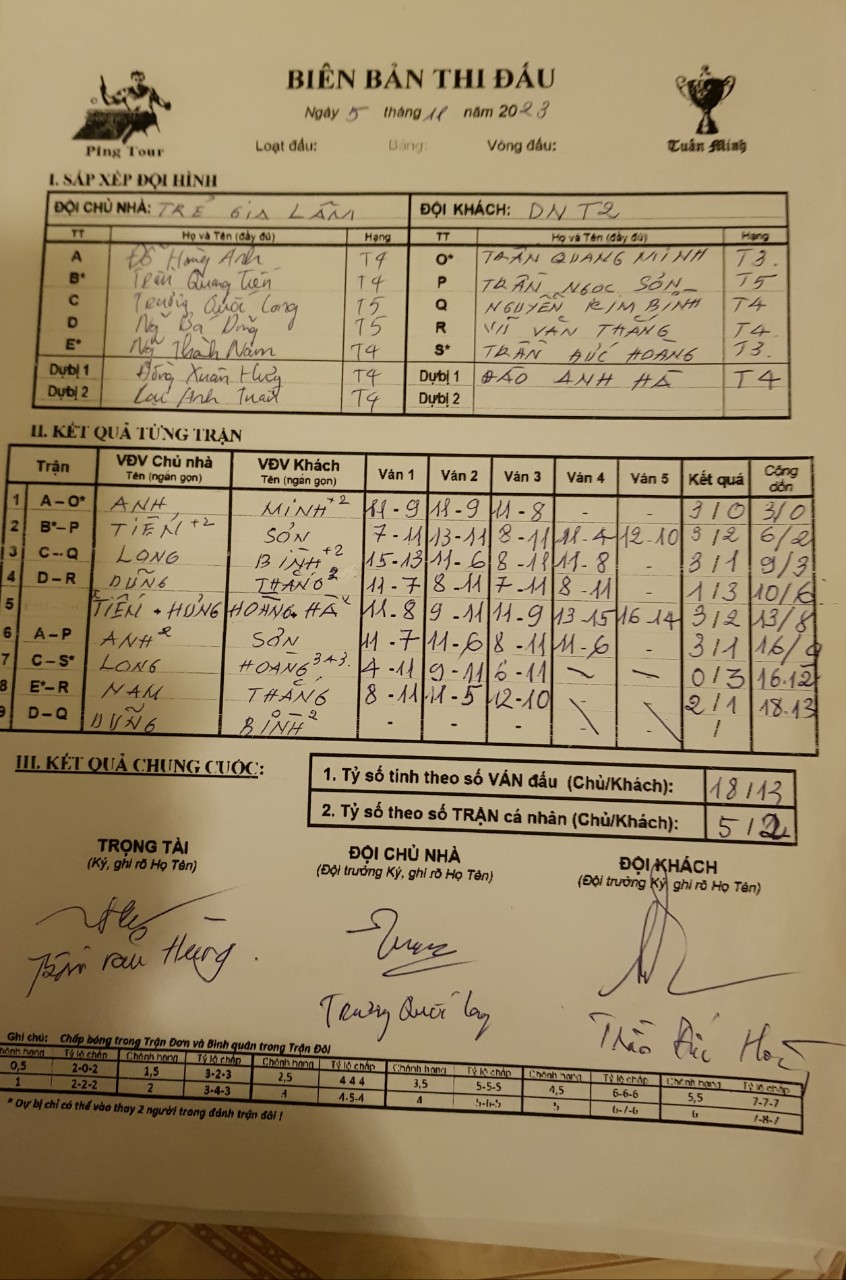 BIÊN BẢN THI ĐẤU
Ngày 5 tháng 11 năm 2023
Ping Tour
Loạt đấu: Bảng: Vòng đấu:
Tuấn Minh
I. SẮP XẾP ĐỘI HÌNH
ĐỘI CHỦ NHÀ: TRẺ GIA LÂM ĐỘI KHÁCH: DN T2
TT Họ và Tên (đầy đủ) Hạng TT Họ và Tên (đầy đủ) Hạng
A Đỗ Hoàng Anh T4 O* TRẦN QUANG MINH T3.
B* Trần Quang Tiến T4 P TRẦN NGỌC SƠN T5
C Trương Quốc Long T5 Q NGUYỄN KIM BÌNH T4
D Ng Bá Dũng T5 R VŨ VĂN THẮNG T4
E* Ng Thành Nam T4 S* TRẦN ĐỨC HOÀNG T3.
Dựbị 1 Đồng Xuân Hưng T4 Dựbị 1 ĐÀO ANH HÀ T4
Dựbị 2 Lại Anh Tuấn T4 Dựbị 2
II. KẾT QUẢ TỪNG TRẬN
Trận VĐV Chủ nhà Tên (ngắn gọn) VĐV Khách Tên (ngắn gọn) Ván 1 Ván 2 Ván 3 Ván 4 Ván 5 Kết quả Cộng dồn
1 A – O* ANH MINH +2 11 - 9 11 - 9 11 - 8 - - 3 / 0 3/0
2 B*– P TIẾN +2 SƠN 7 - 11 13 - 11 8 - 11 11 - 4 12 - 10 3 / 2 6/2
3 C – Q LONG BÌNH +2 15 - 13 11 - 6 8 - 11 11 - 8 - 3 / 1 9/3
4 D – R DŨNG THẮNG 2 11 - 7 8 - 11 7 - 11 8 - 11 - 1 / 3 10/6
5 TIẾN + HƯNG HOÀNG + HÀ 11 - 8 9 - 11 11 - 9 13 - 15 16 - 14 3 / 2 13/8
6 A – P ANH 2 SƠN 11 - 7 11 - 6 8 - 11 11 - 6 - 3 / 1 16/9
7 C – S* LONG HOÀNG 3+3. 4 - 11 9 - 11 6 - 11 0 / 3 16.12
8 E*– R NAM THẮNG 8 - 11 11 - 5 12 - 10 2 / 1 18.13
9 D – Q DŨNG BÌNH 2 - - - - - /
III. KẾT QUẢ CHUNG CUỘC:
1. Tỷ số tính theo số VÁN đấu (Chủ/Khách): 18 / 13
2. Tỷ số theo số TRẬN cá nhân (Chủ/Khách): 5 / 2
TRỌNG TÀI ĐỘI CHỦ NHÀ ĐỘI KHÁCH
(Ký, ghi rõ Họ Tên) (Đội trưởng Ký, ghi rõ Họ Tên) (Đội trưởng Ký, ghi rõ Họ Tên)
Hùng.
Trương Quốc Long
Trần Đức Hoàng
Ghi chú: Chấp bóng trong Trận Đơn và Bình quân trong Trận Đôi
Chênh hạng Tỷ lệ chấp Chênh hạng Tỷ lệ chấp Chênh hạng Tỷ lệ chấp Chênh hạng Tỷ lệ chấp Chênh hạng Tỷ lệ chấp Chênh hạng Tỷ lệ chấp
0,5 2-0-2 1,5 3-2-3 2,5 4 4 4 3,5 5-5-5 4,5 6-6-6 5,5 7-7-7
1 2-2-2 2 3-4-3 4-5-4 4 5-6-5 5 6-7-6 6 7-8-7
* Dự bị chỉ có thể vào thay 2 người trong đánh trận đôi !